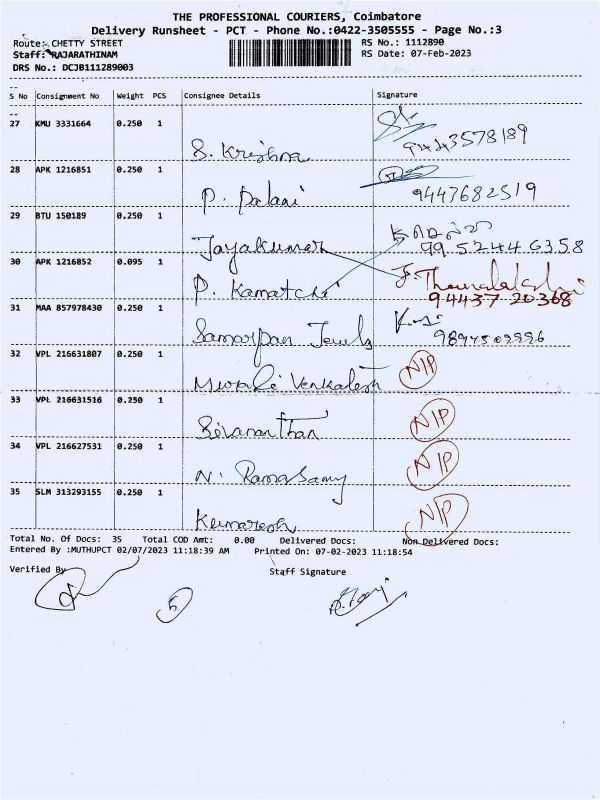 THE PROFESSIONAL COURIERS, Coimbatore
Delivery Runsheet - PCT - Phone No.:0422-3505555 - Page No.:3
Route: CHETTY STREET
RS No.: 1112890
Staff: RAJARATHINAM
RS Date: 07-Feb-2023
DRS No.: DCJB111289003
S No Consignment No Weight PCS Consignee Details Signature
27 KMU 3331664 0.250 1
S. Krishna 9443578189
28 APK 1216851 0.250 1
P. Palani 9447682519
29 BTU 150189 0.250 1
Jayakumar 99 5244 6358
30 APK 1216852 0.095 1
P. Kamatchi 94437 20368
31 MAA 857978430 0.250 1
Samarpan Jewels
32 VPL 216631807 0.250 1
Murali Venkatesh N/P
33 VPL 216631516 0.250 1
Sivananthan N/P
34 VPL 216627531 0.250 1
N. Ramasamy N/P
35 SLM 313293155 0.250 1
Kumaresh N/P
Total No. Of Docs: 35 Total COD Amt: 0.00 Delivered Docs: Non Delivered Docs:
Entered By :MUTHUPCT 02/07/2023 11:18:39 AM Printed On: 07-02-2023 11:18:54
Verified By
Staff Signature
5